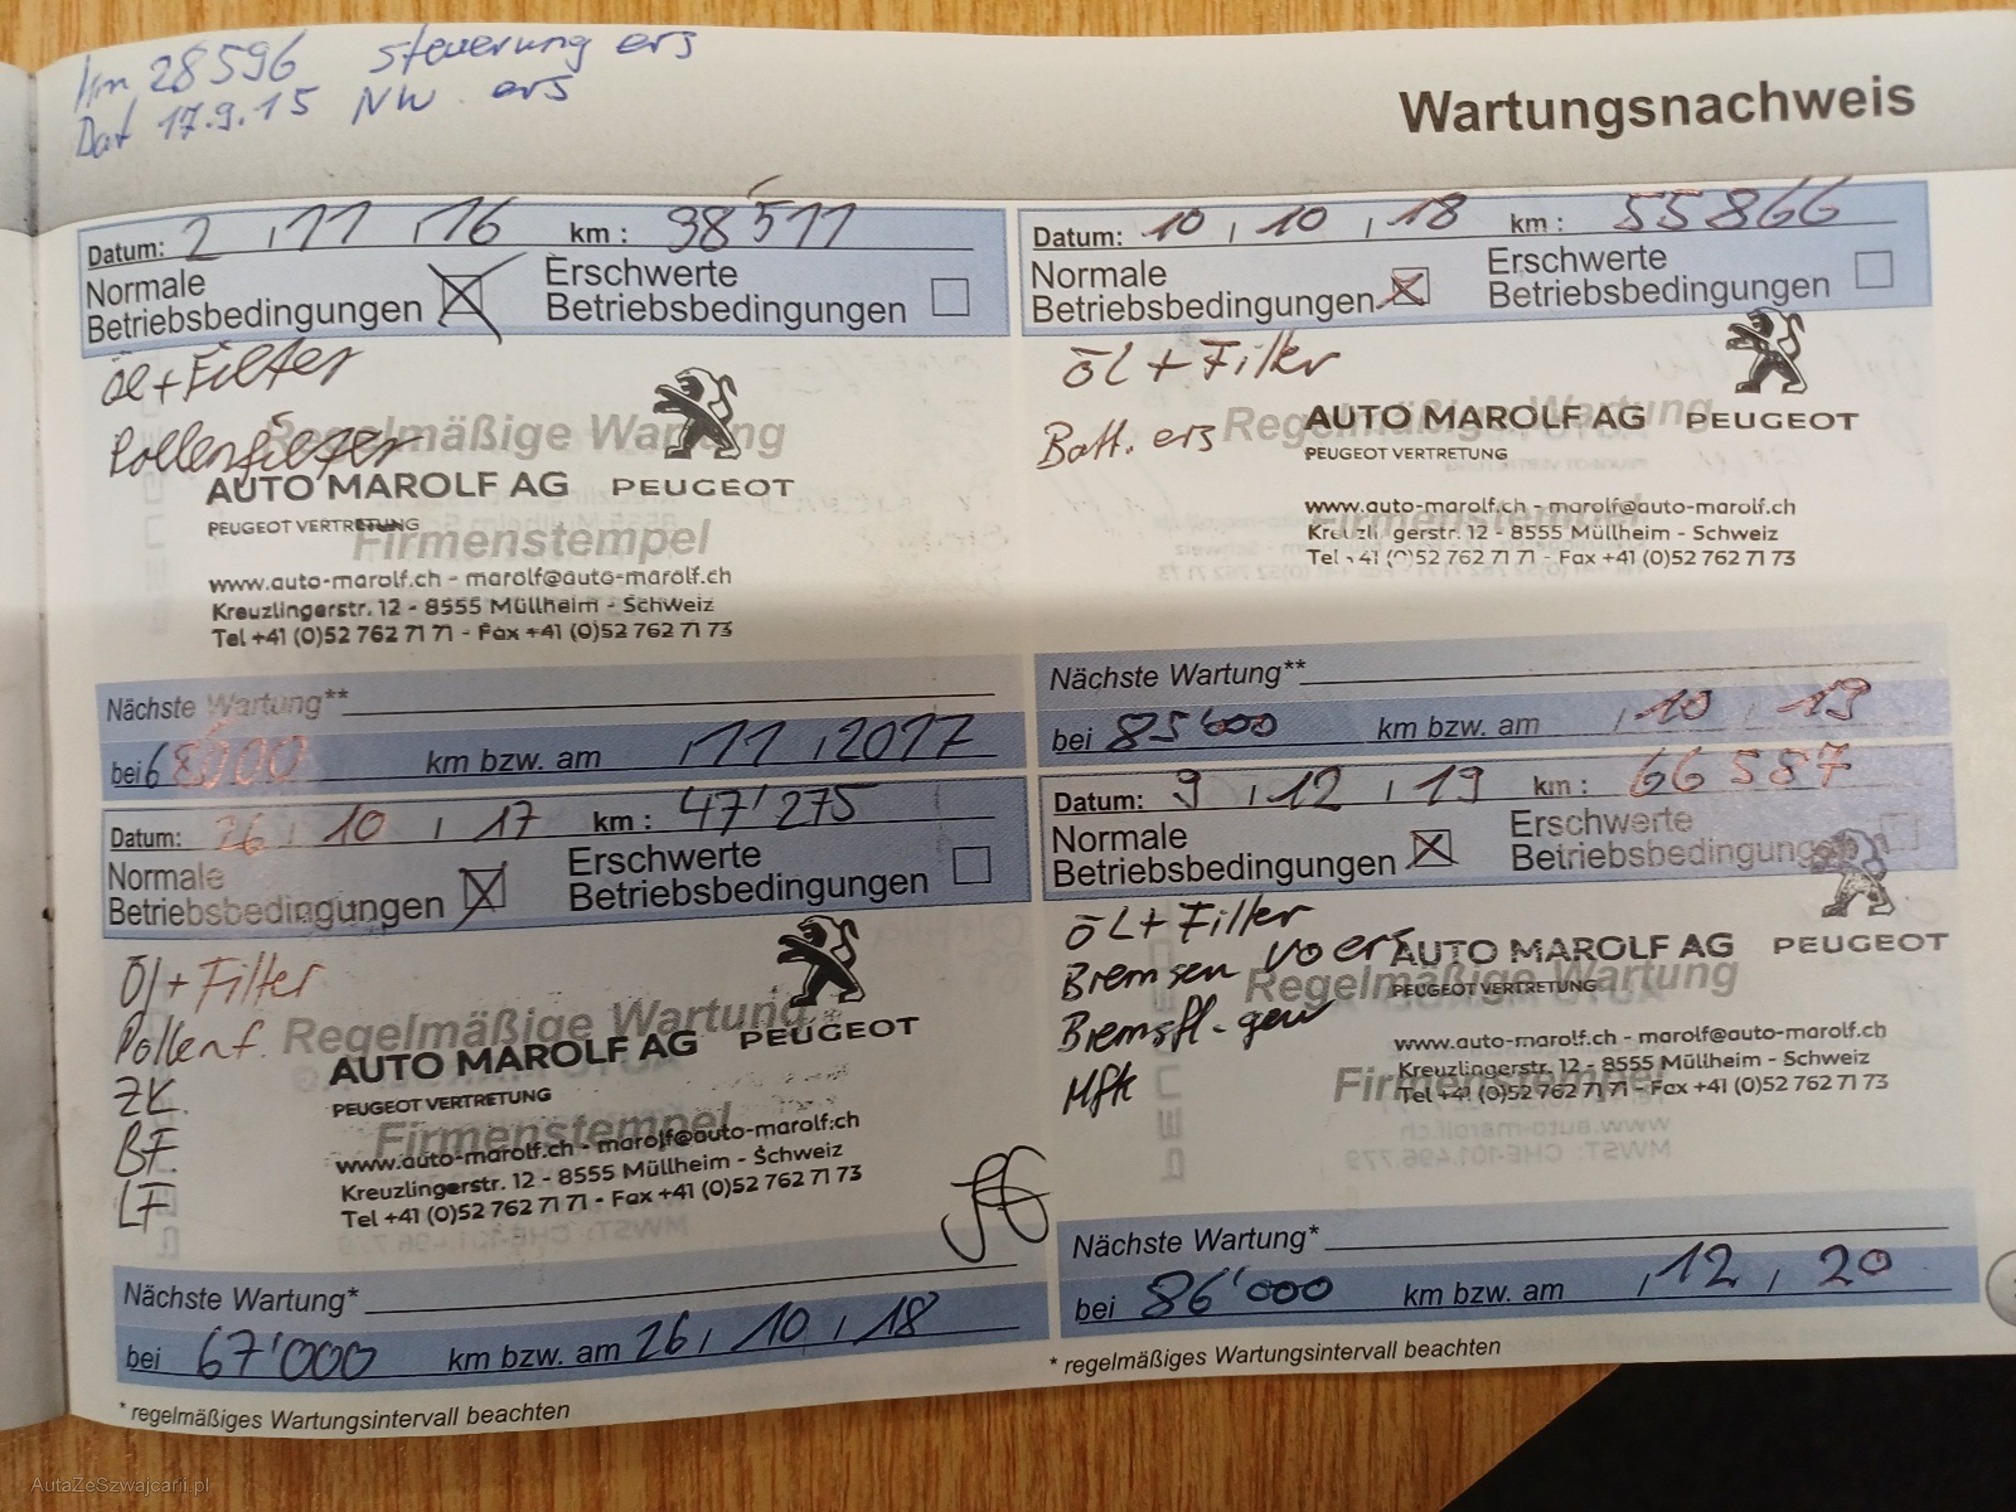 km 28596 Steuerung ers
Dat 17.9.15 NW ers
Wartungsnachweis
Datum: 2 , 11 , 16 km : 38'511
Normale
Betriebsbedingungen
Erschwerte
Betriebsbedingungen
Öl + Filter
Pollenfilter
Regelmäßige Wartung
AUTO MAROLF AG PEUGEOT
PEUGEOT VERTRETUNG
Firmenstempel
www.auto-marolf.ch - marolf@auto-marolf.ch
Kreuzlingerstr. 12 - 8555 Müllheim - Schweiz
Tel +41 (0)52 762 71 71 - Fax +41 (0)52 762 71 73
Nächste Wartung**
bei 68000 km bzw. am , 11 , 2017
Datum: 26 , 10 , 17 km : 47'275
Normale
Betriebsbedingungen
Erschwerte
Betriebsbedingungen
Öl + Filter
Pollenf.
ZK.
BF.
LF
Regelmäßige Wartung
AUTO MAROLF AG PEUGEOT
PEUGEOT VERTRETUNG
Firmenstempel
www.auto-marolf.ch - marolf@auto-marolf.ch
Kreuzlingerstr. 12 - 8555 Müllheim - Schweiz
Tel +41 (0)52 762 71 71 - Fax +41 (0)52 762 71 73
Nächste Wartung*
bei 67'000 km bzw. am 26 , 10 , 18
* regelmäßiges Wartungsintervall beachten
Datum: 10 , 10 , 18 km : 55866
Normale
Betriebsbedingungen
Erschwerte
Betriebsbedingungen
Öl + Filter
Batt. ers
Regelmäßige Wartung
AUTO MAROLF AG PEUGEOT
PEUGEOT VERTRETUNG
www.auto-marolf.ch - marolf@auto-marolf.ch
Firmenstempel
Kreuzlingerstr. 12 - 8555 Müllheim - Schweiz
Tel +41 (0)52 762 71 71 - Fax +41 (0)52 762 71 73
Nächste Wartung**
bei 85'000 km bzw. am , 10 , 19
Datum: 9 , 12 , 19 km : 66587
Normale
Betriebsbedingungen
Erschwerte
Betriebsbedingungen
Öl + Filter
Bremsen vo ers
Bremsfl. gew
Mfk
AUTO MAROLF AG PEUGEOT
Regelmäßige Wartung
PEUGEOT VERTRETUNG
www.auto-marolf.ch - marolf@auto-marolf.ch
Kreuzlingerstr. 12 - 8555 Müllheim - Schweiz
Firmenstempel
Tel +41 (0)52 762 71 71 - Fax +41 (0)52 762 71 73
Nächste Wartung*
bei 86'000 km bzw. am , 12 , 20
* regelmäßiges Wartungsintervall beachten
AutaZeSzwajcarii.pl